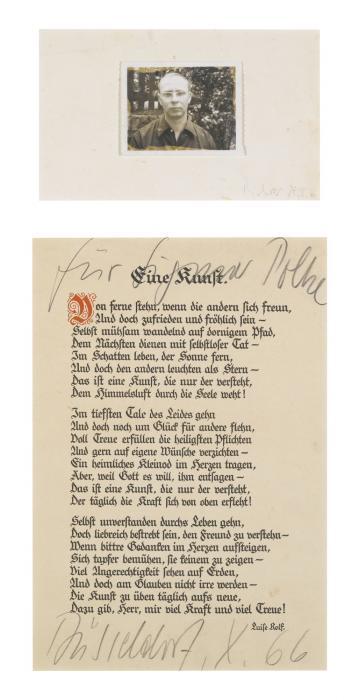 für Sigmar Polke
Eine Kunst.
Von ferne stehn, wenn die andern sich freun,
Und doch zufrieden und fröhlich sein –
Selbst mühsam wandelnd auf dornigem Pfad,
Dem Nächsten dienen mit selbstloser Tat –
Im Schatten leben, der Sonne fern,
Und doch den andern leuchten als Stern –
Das ist eine Kunst, die nur der versteht,
Dem Himmelsluft durch die Seele weht!
Im tiefsten Tale des Leides gehn
Und doch noch um Glück für andre flehn,
Voll Treue erfüllen die heiligsten Pflichten
Und gern auf eigene Wünsche verzichten –
Ein heimliches Kleinod im Herzen tragen,
Aber, weil Gott es will, ihm entsagen –
Das ist eine Kunst, die nur der versteht,
Der täglich die Kraft sich von oben erfleht!
Selbst unverstanden durchs Leben gehn,
Doch liebreich bestrebt sein, den Freund zu verstehn –
Wenn bittre Gedanken im Herzen aufsteigen,
Sich tapfer bemühen, sie keinem zu zeigen –
Viel Ungerechtigkeit sehen auf Erden,
Und doch am Glauben nicht irre werden –
Die Kunst zu üben täglich aufs neue,
Dazu gib, Herr, mir viel Kraft und viel Treue!
Luise Kolf.
Düsseldorf, X. 66